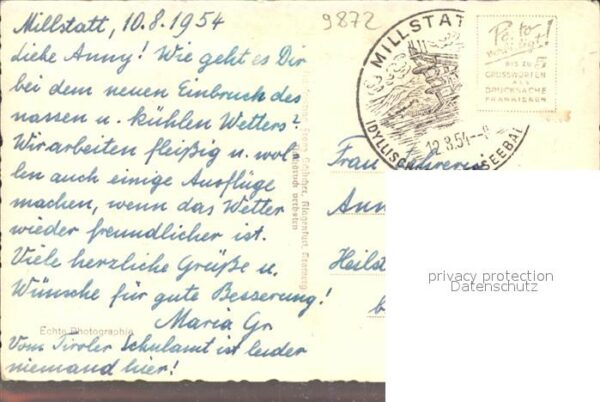 Millstatt, 10.8.1954
9872
Liebe Anny! Wie geht es Dir
bei dem neuen Einbruch des
nassen u. kühlen Wetters?
Wir arbeiten fleißig u. wol-
len auch einige Ausflüge
machen, wenn das Wetter
wieder freundlicher ist.
Viele herzliche Grüße u.
Wünsche für gute Besserung!
Maria Gr
Vom Tiroler Schulamt ist leider
niemand hier!
Echte Photographie
Klagenfurt
verboten
MILLSTAT
IDYLLISCH
SEEBAD
12.8.54
BIS ZU 5
GRUSSWORTEN
ALS
DRUCKSACHE
FRANKIEREN
Frau
Ann
Heils
b
privacy protection
Datenschutz